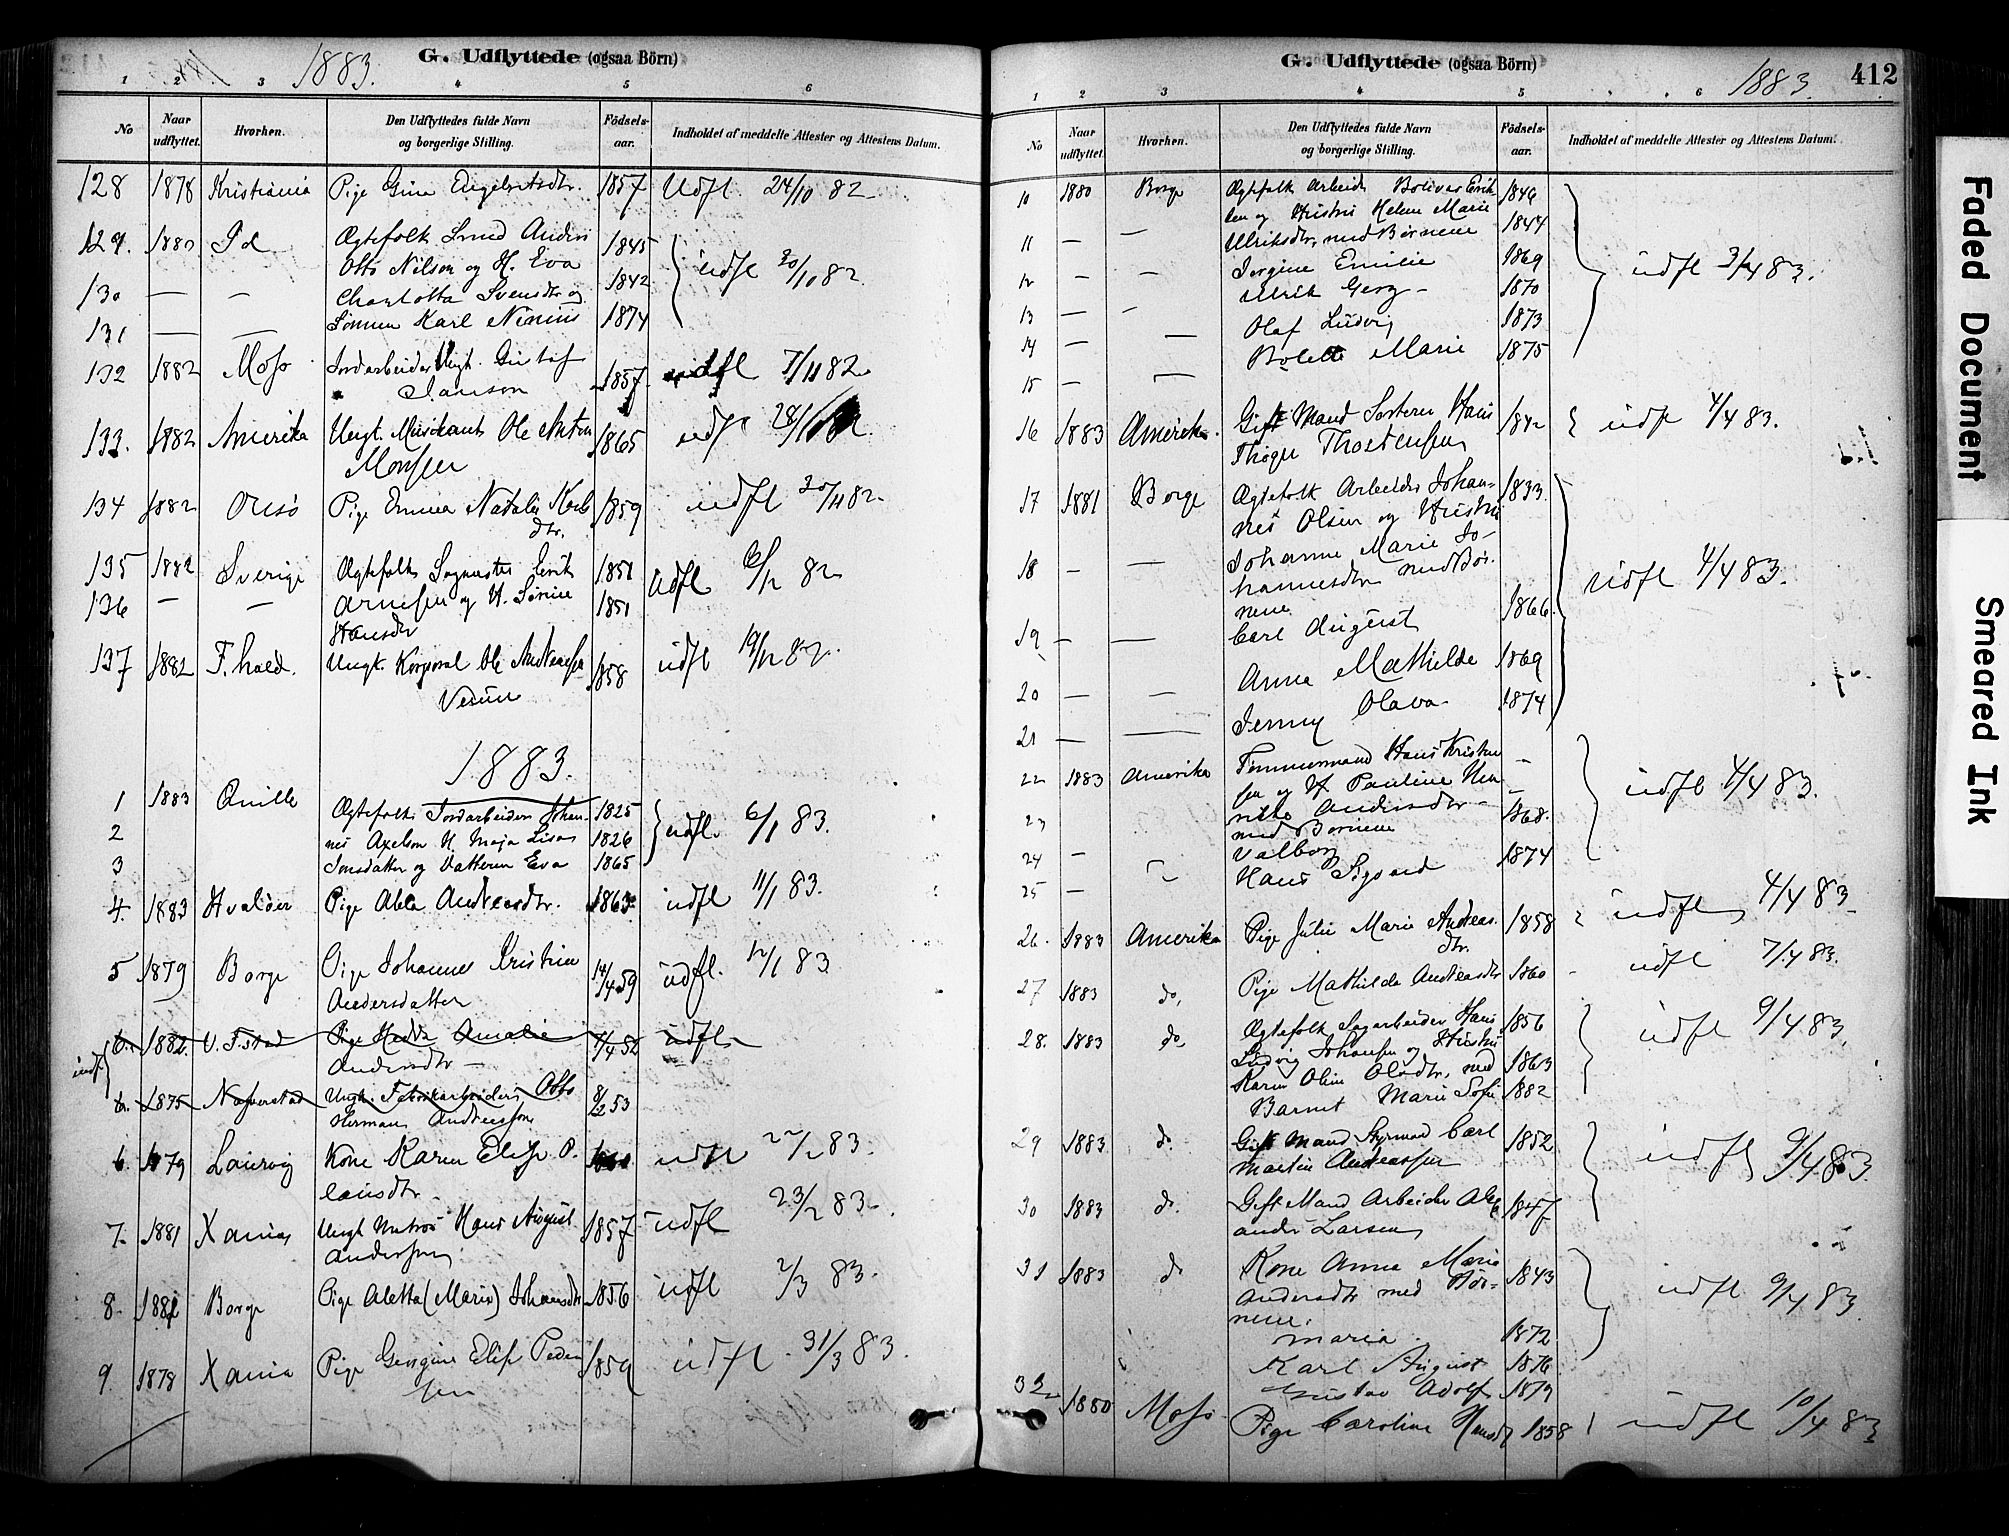 1883.
G. Udflyttede (ogsaa Börn)
1 2 3 4 5 6
No
Naar udflyttet.
Hvorhen.
Den Udflyttedes fulde Navn og borgerlige Stilling.
Födsels-aar.
Indholdet af meddelte Attester og Attestens Datum.
128 1878 Kristiania Pige Gina Engebretsdtr. 1857 Udfl. 24/10 82
129. 1882 Id Ægtefolk Smed Anders 1845
Otto Nilson og H. Eva 1842 udfl 30/10 82.
130 — — Charlotta Svensdtr og
131 — — Sönnen Karl 1874
132 1882 Moss Jordarbeider Ungk. Gustaf
Janson 1857 udfl 7/11 82
133. 1882 Amerika Ungk. Musikant Ole Anton 1865 udfl 28/11 82
Monssen
134 1882 Onsö Pige Emma Natalie Karls 1859 udfl 30/11 82.
dtr.
135 1882 Sverige Ægtefolk Sagmester Erik 1851 Udfl 6/12 82
136 — — Arnesen og H. Sörine 1851
Hansdtr
137 1882 F.hald. Ungk. Korporal Ole Andreassen 1858 udfl 19/12 82.
1883.
1 1883 Qville Ægtefolk Jordarbeider Johan- 1825
2 nes Axelson H. Maja Lisa 1826 udfl. 6/1 83.
3 Jonsdatter og Datteren Eva 1865
4. 1883 Hvaløer Pige Andreasdtr. 1863 udfl 11/1 83.
5 1879 Borge Pige Johanne Kristine 14/4 59 udfl. 12/1 83
Andersdatter
6. 1882 V. F.stad Pige Hedda Amalie 52 udfl
Andersdtr —
udfl
6. 1875 Ungk. Fabrikarbeider Otto 8/2 53
Herman Andreassen
6. 1879 Laurvig Kone Karen Elise P. udfl 22/2 83.
7. 1881 Xania Ungk Matros Hans August 1857 udfl 23/2 83.
Anderssen
8. 1881 Borge Pige Aletta (Marie) Johansdtr 1856 udfl 2/3 83.
9. 1878 Xania Pige Georgine Elise Peder 1859 udfl. 31/3 83.
sen
G. Udflyttede (ogsaa Börn)
1883.
412
1 2 3 4 5 6
No
Naar udflyttet.
Hvorhen.
Den Udflyttedes fulde Navn og borgerlige Stilling.
Födsels-aar.
Indholdet af meddelte Attester og Attestens Datum.
10 1880 Borge Ægtefolk Arbeider Erik 1846
sen og Hustru Helene Marie 1844
11 — — Ulriksdtr, med Börnene
Jorgine Emilie 1869 udfl 3/4 83.
12 — — Ulrik Georg — 1870
13 — — Olaf Ludvig 1873
14 — — Bolette Marie 1875
15 — —
16 1883 Amerika. Gift Mand Sorterer Hans 1842 udfl 4/4 83.
Thöger Thostensen
17 1881 Borge Ægtefolk Arbeider Johan- 1833.
nes Olsen og Hustru
18 — — Johanne Marie Jo- udfl 4/4 83.
hannesdtr med Bör-
nene
19 — — Carl August 1866
20 — — Anna Mathilde 1869
21 — — Jenny Olava 1874
22 1883 Amerika Tømmermand Hans Kristen —
sen og H. Pauline Hen — udfl 4/4 83.
23 rikke Andersdtr —
med Bornene 1868.
24 — Valborg
25 — Hans Sigvard 1874
26. 1883 Amerika Pige Julie Marie Andreas. 1858 udfl 4/4 83
dtr.
27 1883 do. Pige Mathilde Andreasdtr 1860 udfl 7/4 83.
28. 1883 do Ægtefolk Sagarbeider Hans 1856 udfl 9/4 83.
Ludvig Johansen og Hustru
Karen Oline Olsdtr. med 1863
Barnet Marie Sofie 1882
29 1883. do. Gift Mand Styrmand Carl 1852 udfl 9/4 83.
Martin Andreassen
30 1883 do. Gift Mand Arbeider Alex 1847
ander Larsen
31 1883 do Kone Anna Maria 1843
Andersdtr med Bör- udfl 9/4 83.
nene.
Maria. 1872
Karl August 1876
Gustav Adolf 1879
32 1880 Moss Pige Caroline Hansd 1858 udfl 10/4 83
Faded Document
Smeared Ink